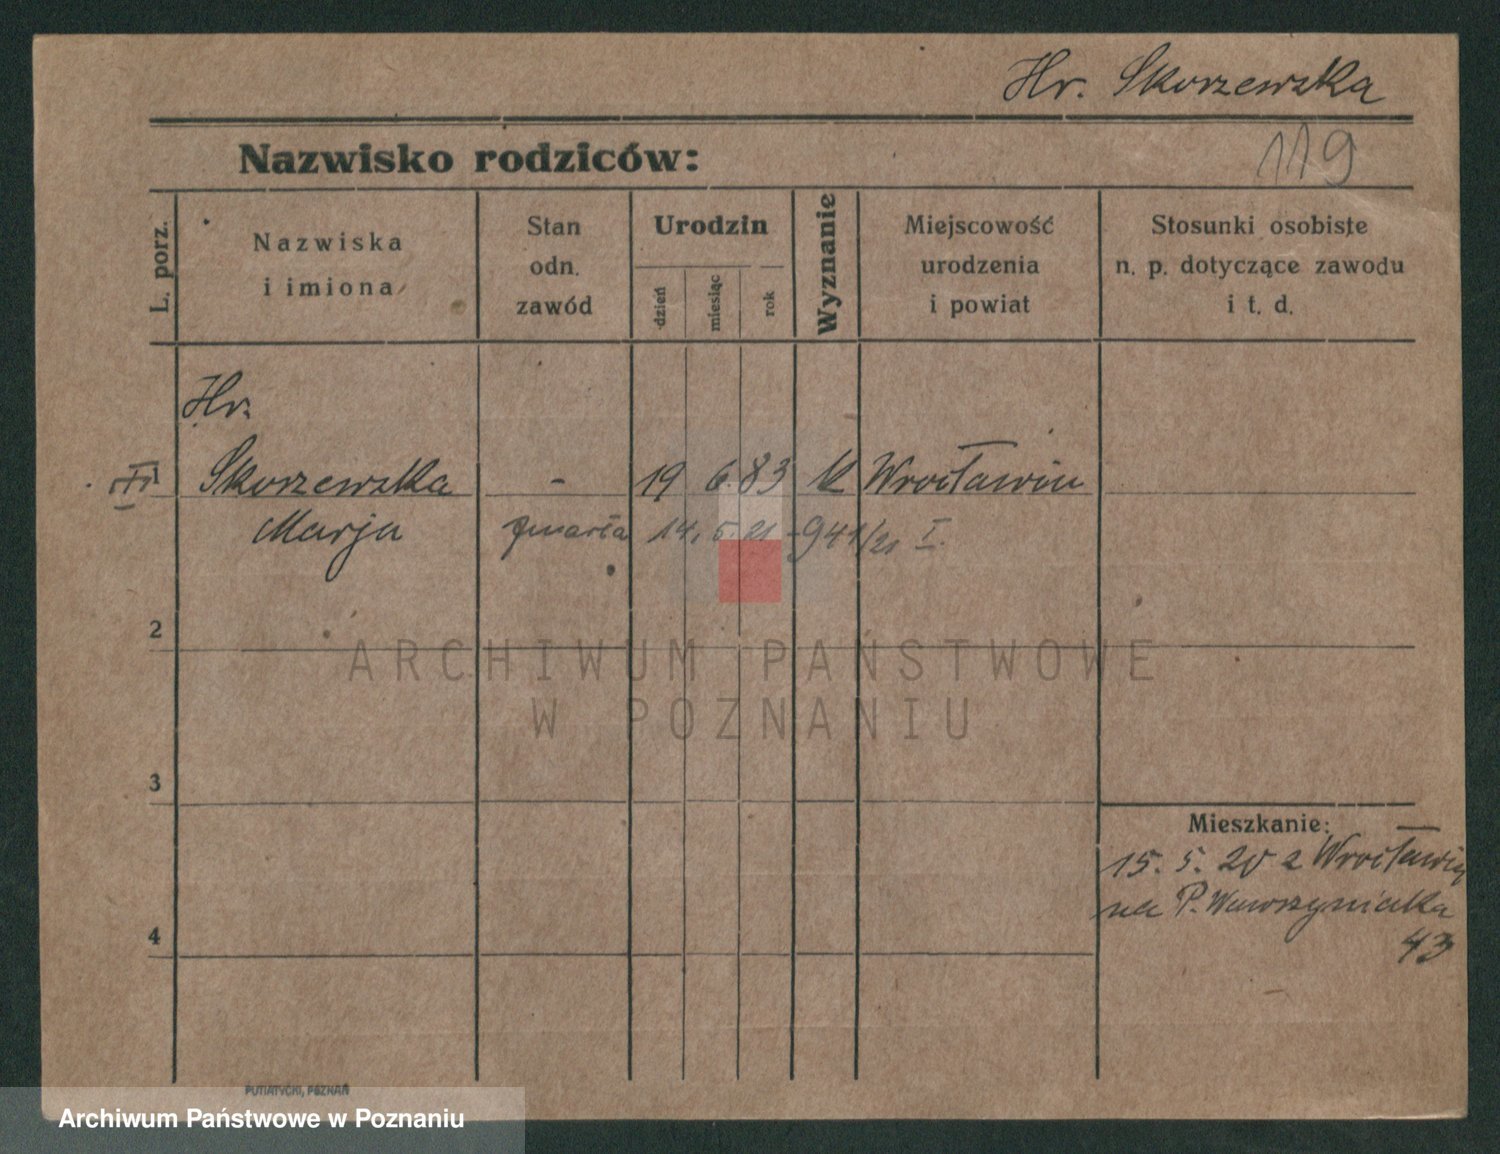 Hr. Skorzewska
119
Nazwisko rodziców:
L. porz.
Nazwiska
i imiona
Stan
odn.
zawód
Urodzin
dzień
miesiąc
rok
Wyznanie
Miejscowość
urodzenia
i powiat
Stosunki osobiste
n. p. dotyczące zawodu
i t. d.
Hr.
Skorzewska - 19 6. 83 k Wrocławiu
Marja zmarła 14. 5. 21 - 941/21 I.
2
3
4
Mieszkanie:
15. 5. 20 z Wrocławia
na P. Wawrzyniaka
43
ARCHIWUM PAŃSTWOWE
W POZNANIU
PUTIATYCKI, POZNAŃ
Archiwum Państwowe w Poznaniu